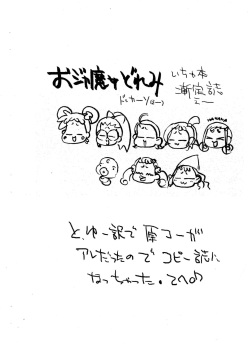 おジャ魔女どれみ
いちお本
暫定誌
ドッカ〜ン(ロー)
と、ゆー訳で 原コーが
アレだったので コピー誌に
なっちゃった。てへ♪